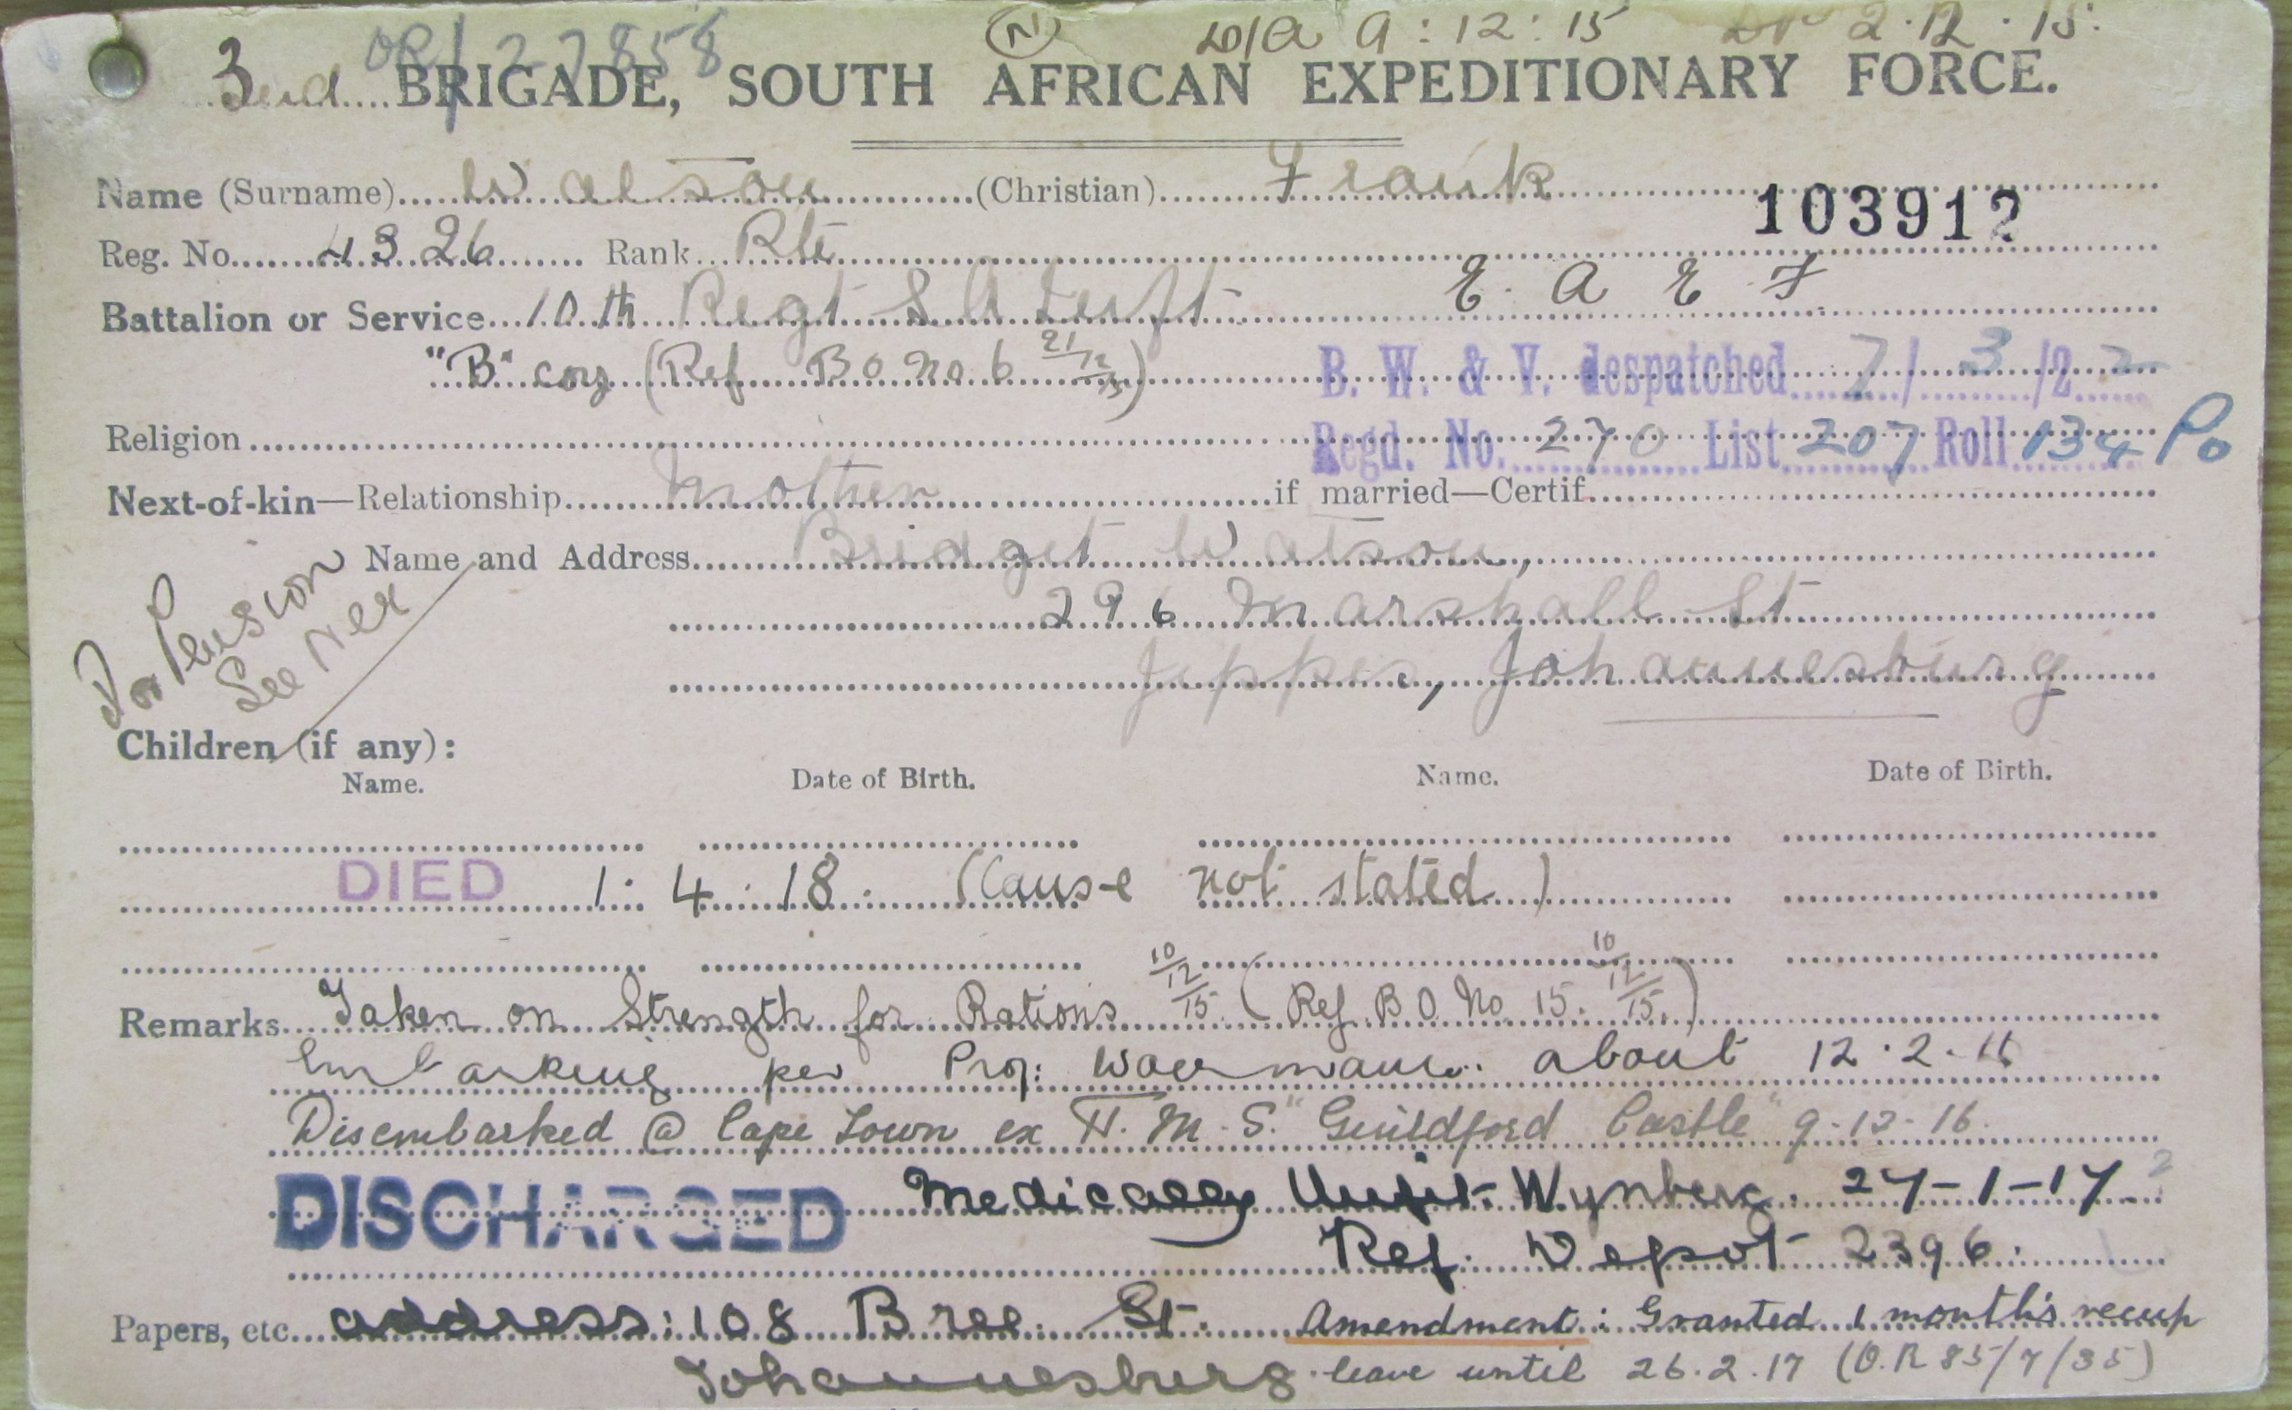 OR/27858 (N) W/A 9:12:15 2.12.15.
BRIGADE, SOUTH AFRICAN EXPEDITIONARY FORCE.
Name (Surname) Watson (Christian) Frank
103912
Reg. No. 4326 Rank Pte
Battalion or Service 10th Regt S A Infty E. A E F
"B" coy (Ref B O No. 6 21/12/15)
B. W. & V. despatched 7/3/22
Religion
Regd. No. 270 List 207 Roll 134 Po
Next-of-kin—Relationship Mother if married—Certif.
Name and Address Bridget Watson,
296 Marshall St
Jeppes, Johannesburg
For Pension
See
Children (if any):
Name. Date of Birth. Name. Date of Birth.
DIED 1. 4. 18. (Cause not stated)
Remarks Taken on Strength for Rations 10/12/15 (Ref B O No 15. 10/12/15.)
Embarking per Prof: Woermann. about 12.2.16
Disembarked @ Cape Town ex H.M.S. "Guildford Castle" 9-12-16.
DISCHARGED Medically Unfit. Wynberg. 27-1-17
Ref. Depot 2396.
Papers, etc. address: 108 Bree. St. Amendment: Granted 1 month's recup
Johannesburg leave until 26.2.17 (O.R 85/7/35)